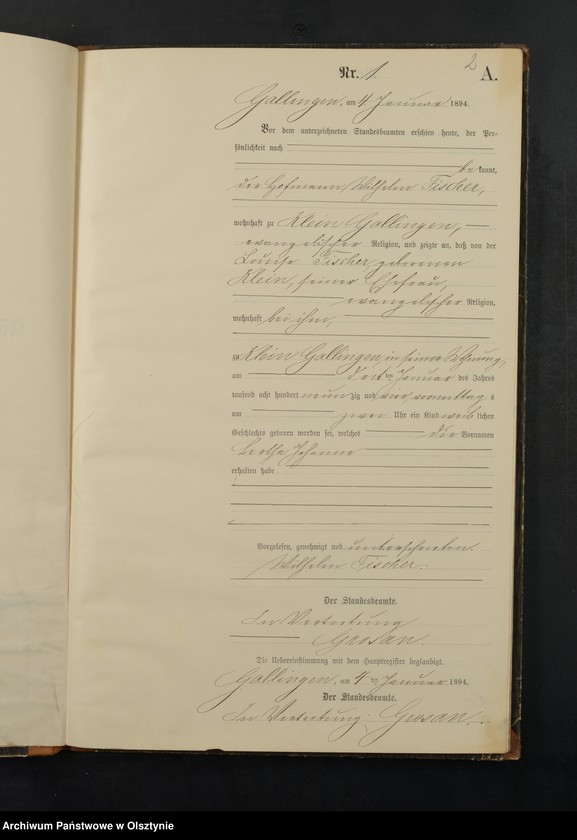 2
Nr. 1. A.
Gallingen, am 4. Januar 1894.
Vor dem unterzeichneten Standesbeamten erschien heute, der Per-
sönlichkeit nach
be kannt,
der Hofmann Wilhelm Fischer,
wohnhaft zu Klein Gallingen,
evangelischer Religion, und zeigte an, daß von der
Louise Fischer, geborenen
Klein, seiner Ehefrau,
evangelischer Religion,
wohnhaft bei ihm,
zu Klein Gallingen, in seiner Wohnung,
am ten Januar des Jahres
tausend acht hundert neun zig und vier, vormittag s
um zwei Uhr ein Kind weib lichen
Geschlechts geboren worden sei, welches die Vornamen
Bertha Johanne
erhalten habe.
Vorgelesen, genehmigt und unterschrieben.
Wilhelm Fischer.
Der Standesbeamte.
In Vertretung
Grosan.
Die Uebereinstimmung mit dem Hauptregister beglaubigt.
Gallingen, am 4 ten Januar 1894.
Der Standesbeamte.
In Vertretung: Grosan.
Archiwum Państwowe w Olsztynie